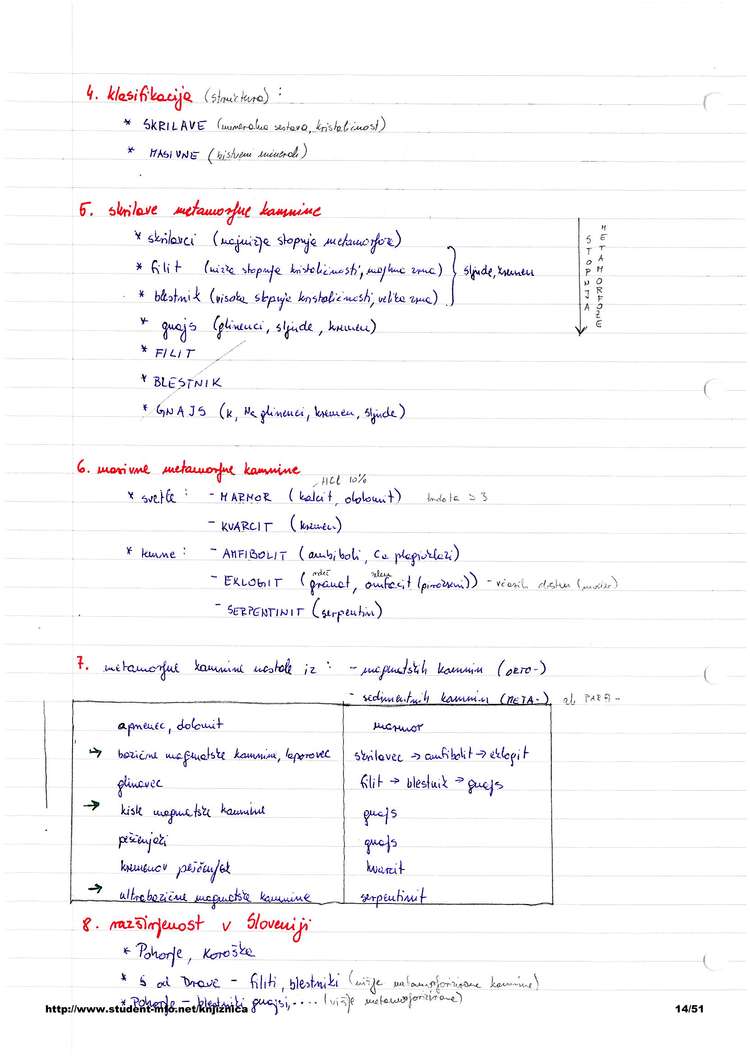 4. klasifikacija (struktura) :
* SKRILAVE (mineralna sestava, kristaličnost)
* MASIVNE (bistveni minerali)
5. skrilave metamorfne kamnine
* skrilavci (najnižja stopnja metamorfoze)
* filit (nizka stopnja kristaličnosti, majhna zrna)
* blestnik (visoka stopnja kristaličnosti, velika zrna)
} sljude, kremen
* gnajs (glinenci, sljude, kremen)
* FILIT
* BLESTNIK
* GNAJS (K, Na glinenci, kremen, sljude)
STOPNJA
METAMORFOZE
6. masivne metamorfne kamnine
HCl 10%
* svetle : - MARMOR (kalcit, dolomit) trdota ≥ 3
- KVARCIT (kremen)
* temne : - AMFIBOLIT (amfiboli, Ca plagioklazi)
rdeč zelen
- EKLOGIT (granat, omfacit (pirokseni)) - včasih disten (moder)
- SERPENTINIT (serpentin)
7. metamorfne kamnine nastale iz : - magmatskih kamnin (ORTO-)
- sedimentnih kamnin (META-) ali PARA -
apnenec, dolomit marmor
→ bazične magmatske kamnine, laporovec skrilavec → amfibolit → eklogit
glinavec filit → blestnik → gnajs
→ kisle magmatske kamnine gnajs
peščenjaki gnajs
kremenov peščenjak kvarcit
→ ultrabazične magmatske kamnine serpentinit
8. razširjenost v Sloveniji
* Pohorje, Koroška
* S od Drave - filiti, blestniki (nižje metamorfozirane kamnine)
* Pohorje - blestniki gnajsi, .... (višje metamorfozirane)
http://www.student-info.net/knjiznica
14/51